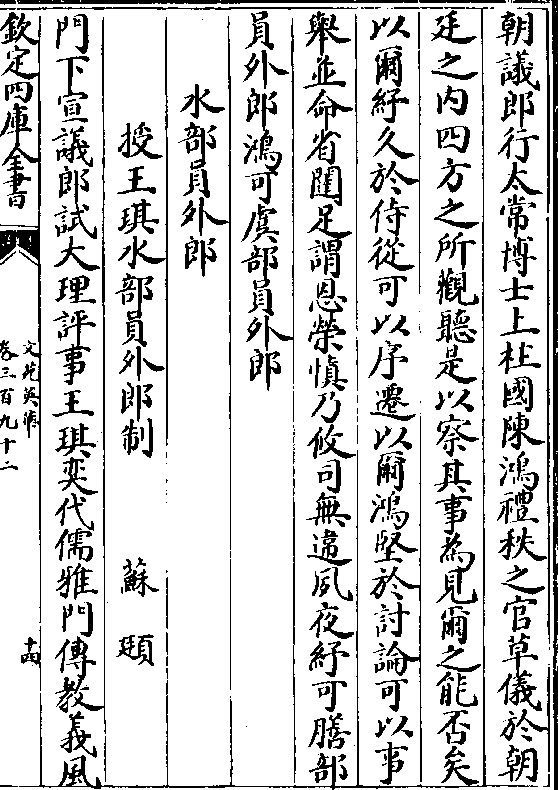 朝議郎行太常博士上柱國陳鴻禮秩之官草儀於朝
廷之内四方之所觀聽是以察其事為見爾之能否矣
以爾紓久於侍從可以序遷以爾鴻堅於討論可以事
舉並命省闥足謂恩榮慎乃攸司無違夙夜紓可膳部
員外郎鴻可虞部員外郎
水部員外郎
授王琪水部員外郎制 蘇頲
門下宣議郎試大理評事王琪奕代儒雅門傳教義風
欽定四庫全書
文苑英華
卷三百九十二
十四